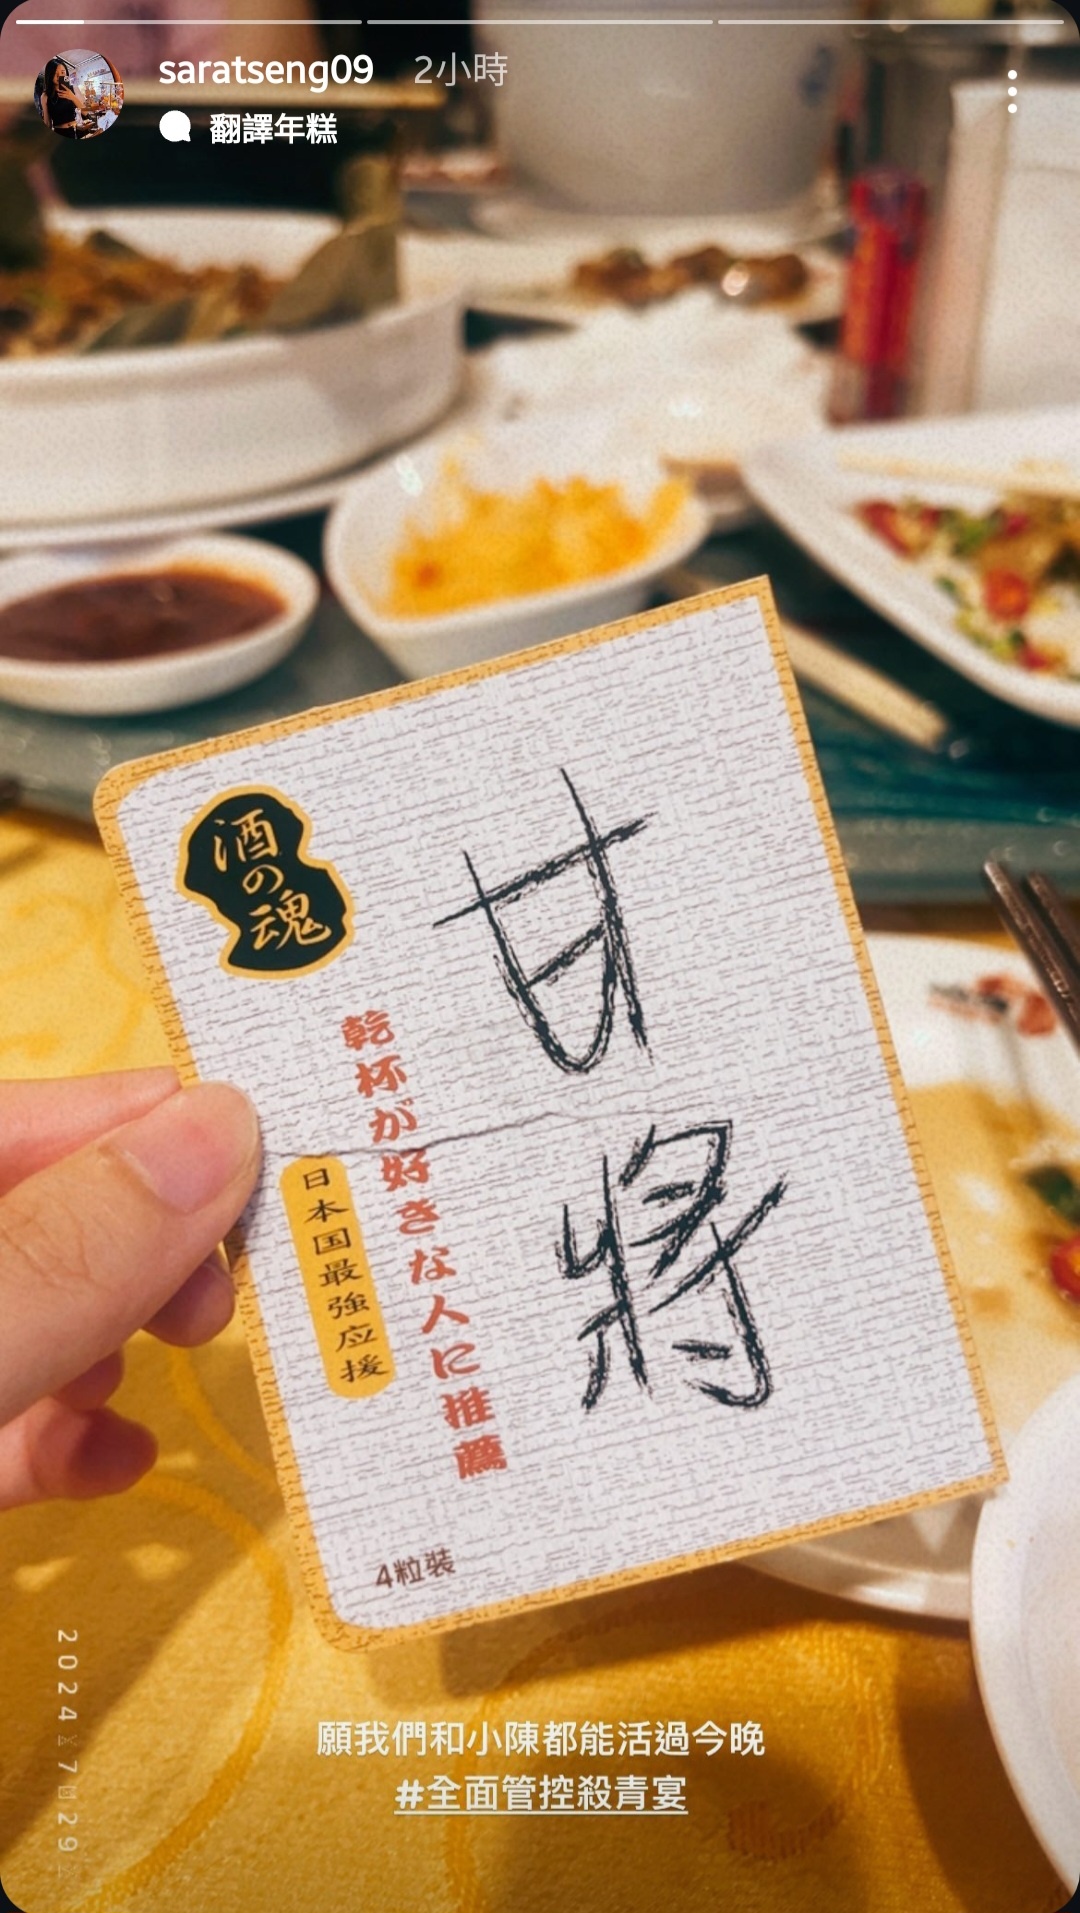 saratseng09 2小時
翻譯年糕
酒の魂
甘將
乾杯が好きな人に推薦
日本国最強応援
4粒裝
願我們和小陳都能活過今晚
#全面管控殺青宴